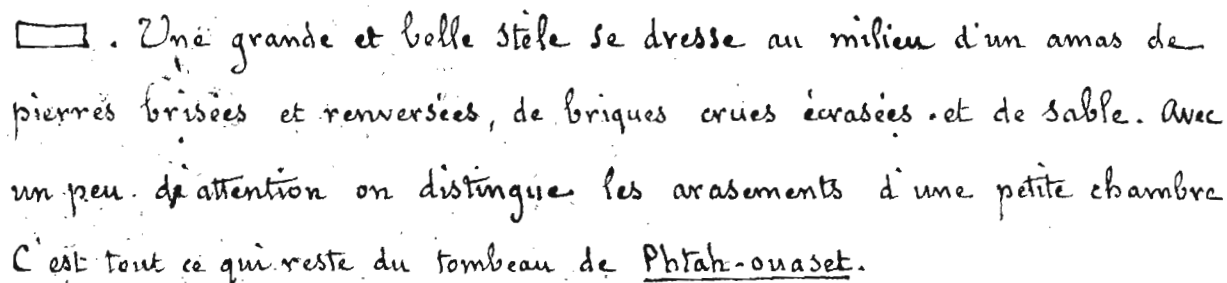 . Une grande et belle stèle se dresse au milieu d'un amas de
pierres brisées et renversées, de briques crues écrasées et de sable. Avec
un peu d'attention on distingue les arasements d'une petite chambre
C'est tout ce qui reste du tombeau de Phtah-ouaset.